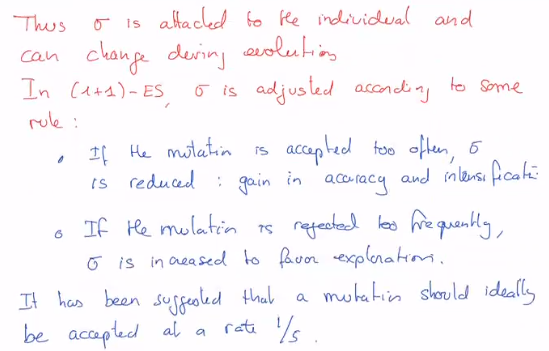 Thus σ is attached to the individual and
can change during evolution
In (1+1)-ES, σ is adjusted according to some
rule :
• If the mutation is accepted too often, σ
is reduced : gain in accuracy and intensificati
• If the mutation is rejected too frequently,
σ is increased to favor exploration.
It has been suggested that a mutation should ideally
be accepted at a rate 1/5.